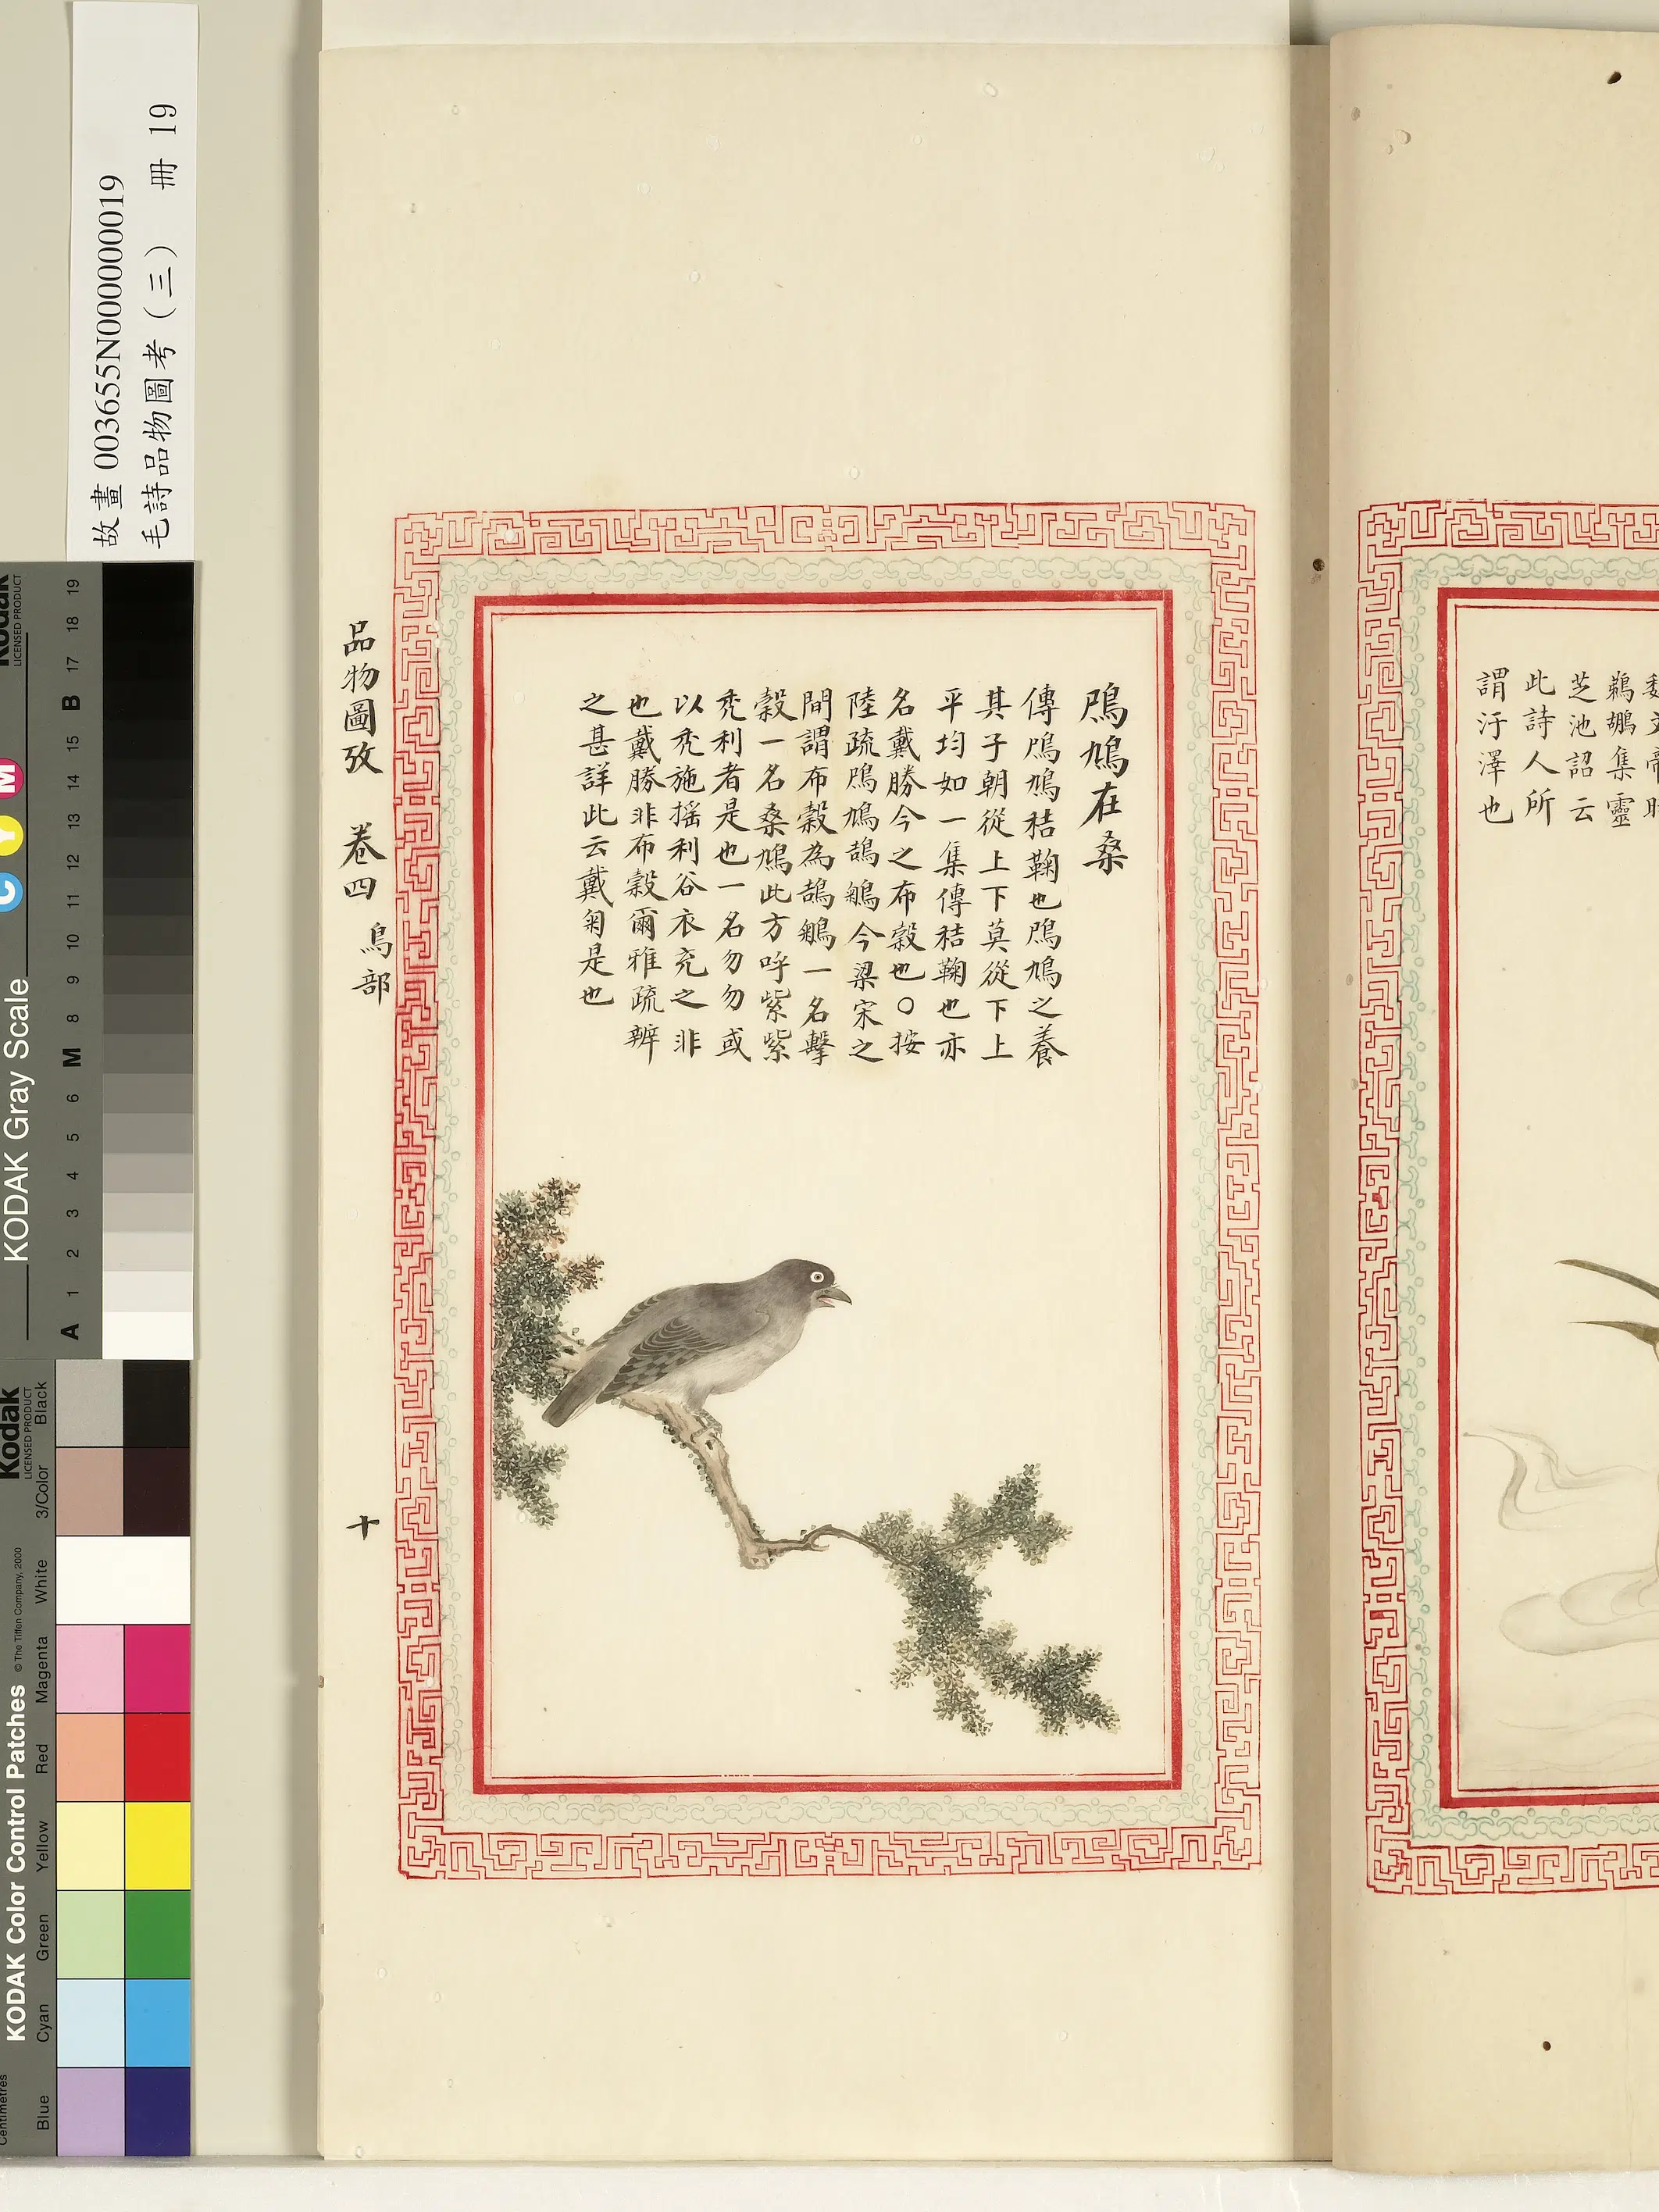 謂汙澤也
此詩人所
芝池詔云
鵜鶘集靈
鳲鳩在桑
傳鳲鳩秸鞠也鳲鳩之養
其子朝從上下莫從下上
平均如一集傳秸鞠也亦
名戴勝今之布穀也○按
陸疏鳲鳩鴶鵴今梁宋之
間謂布穀為鴶鵴一名擊
穀一名桑鳩此方呼紫紫
禿利者是也一名勿勿或
以禿施摇利谷衣充之非
也戴勝非布穀爾雅疏辨
之甚詳此云戴菊是也
品物圖攷 卷四 鳥部
十
故畫 003655N000000019
毛詩品物圖考（三） 冊 19
Kodak
LICENSED PRODUCT
KODAK Gray Scale
C Y M
A 1 2 3 4 5 6 M 8 9 10 11 12 13 14 15 B 17 18 19
Kodak
LICENSED PRODUCT
KODAK Color Control Patches © The Tiffen Company, 2000
Blue Cyan Green Yellow Red Magenta White 3/Color Black
Centimetres